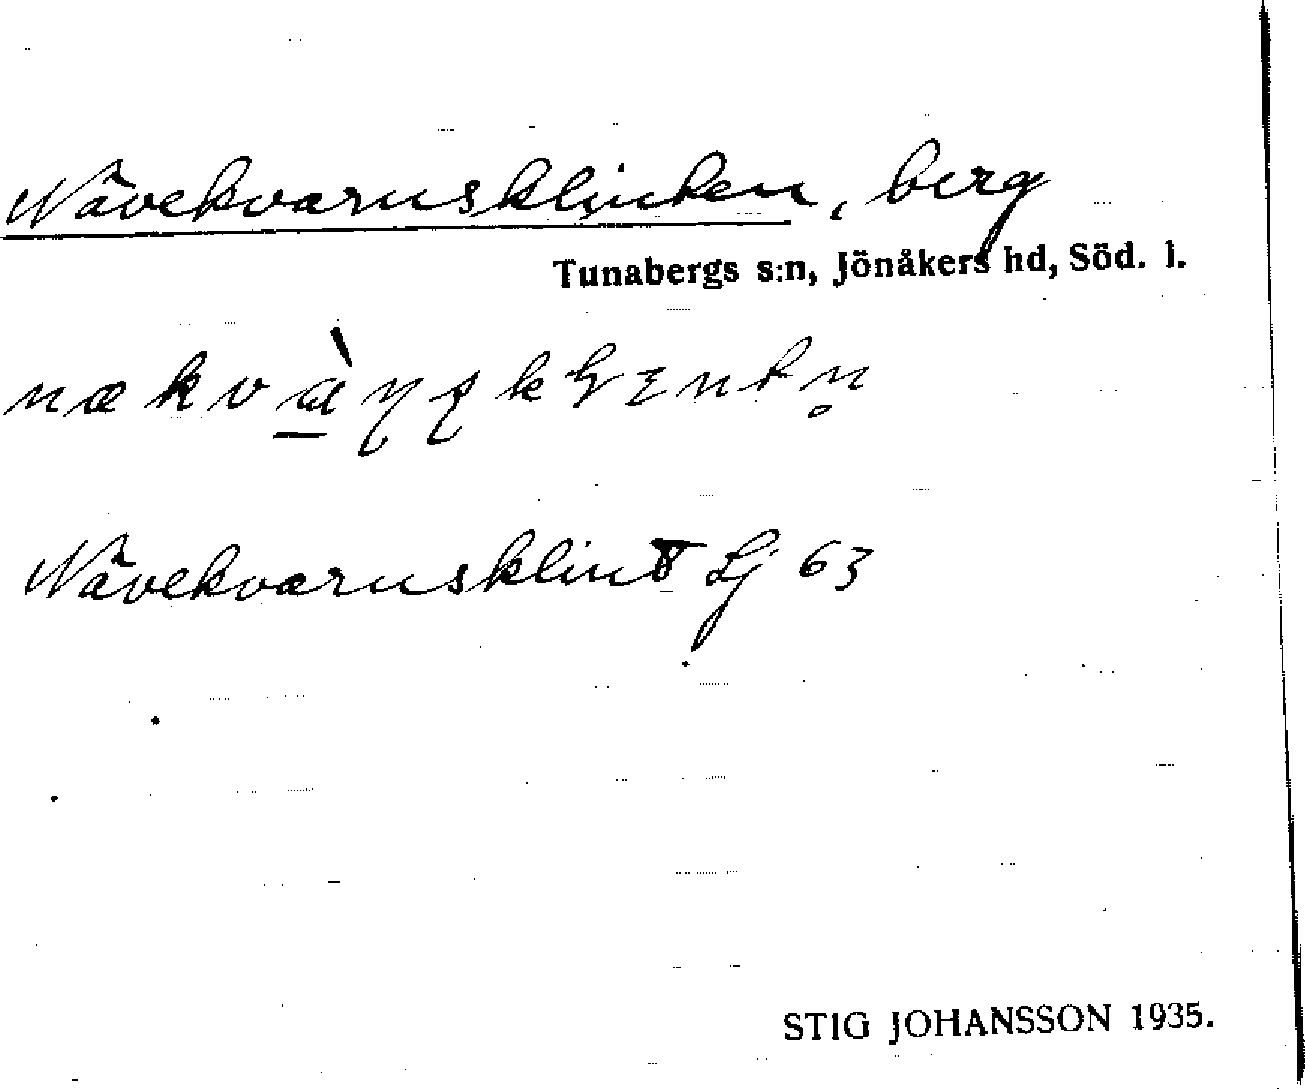 Nävekvarnsklinten, berg
Tunabergs s:n, Jönåkers hd, Söd. l.
Nävekvarnsklint Lj 63
STIG JOHANSSON 1935.